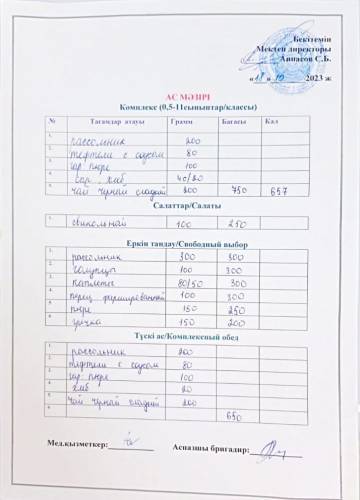 Бекітемін
Мектеп директоры
Аппасов С.Б.
«18» 10 2023 ж
АС МӘЗІРІ
Комплекс (0,5-11сыныптар/классы)
№ Тағамдар атауы Грамм Бағасы Кал
1. рассольник 200
2. тефтели с соусом 80
3. гар пюре 100
4. хлб 40/20
5. чай чёрный сладкий 200 750 657
Салаттар/Салаты
1. свекольный 100 250
Еркін таңдау/Свободный выбор
1. рассольник 300 300
2. голубцы 100 300
3. котлеты 80/50 300
4. перец фаршированный 100 300
5. пюре 150 250
6. гречка 150 200
Түскі ас/Комплексный обед
1. рассольник 200
2. тефтели с соусом 80
3. гар пюре 100
4. хлб 20
5. чай чёрный сладкий 200
6. 650
Мед.қызметкер:
Аспазшы бригадир: